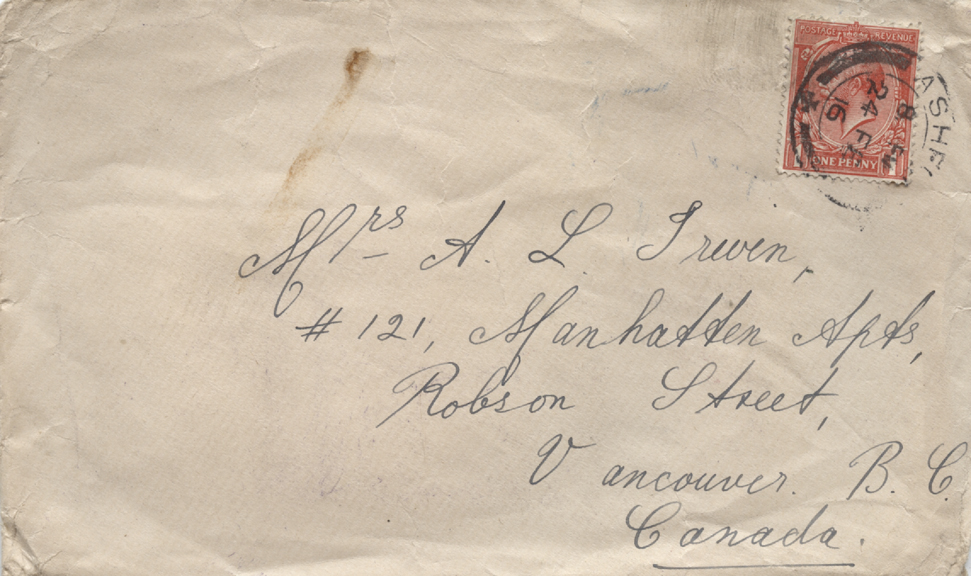 POSTAGE REVENUE
ONE PENNY
8
24 FE
16
Mrs A. L. Irwen,
# 121, Manhatten Apts,
Robson Street,
Vancouver. B. C.
Canada.